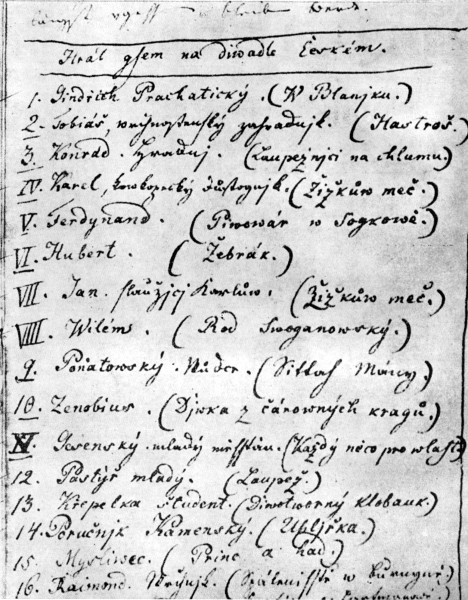 Hrál gsem na diwadle Českém.
1. Jindřich Prachatický. (W Blanjku.)
2. Tobiáš, zahradnjk. (Hastroš.)
3. Konrad. (Laupežnjci na chlumu)
IV. Karel, (Žižkůw meč.)
V. Ferdynand. (Piwowár w Sogkowě.)
VI Hubert. (Žebrák.)
VII. Jan. slaužjcj Karlůw. (Žižkůw meč.)
VIII. Wilém. (Rod Swoganowský.)
9. Poňatowský. (Sittah Mány)
10. Zenobius. (Djwka z čárowných kragů.)
XI. mladý (Každý něco pro wlast)
12. Pastýř mladý. (Laupež.)
13. Křepelka študent. (Diwotworný klobauk.)
14. Poručnjk Kamenský. (Uhljřka.)
15. Mysliwec. (Princ a had.)
16. Raimond. (w